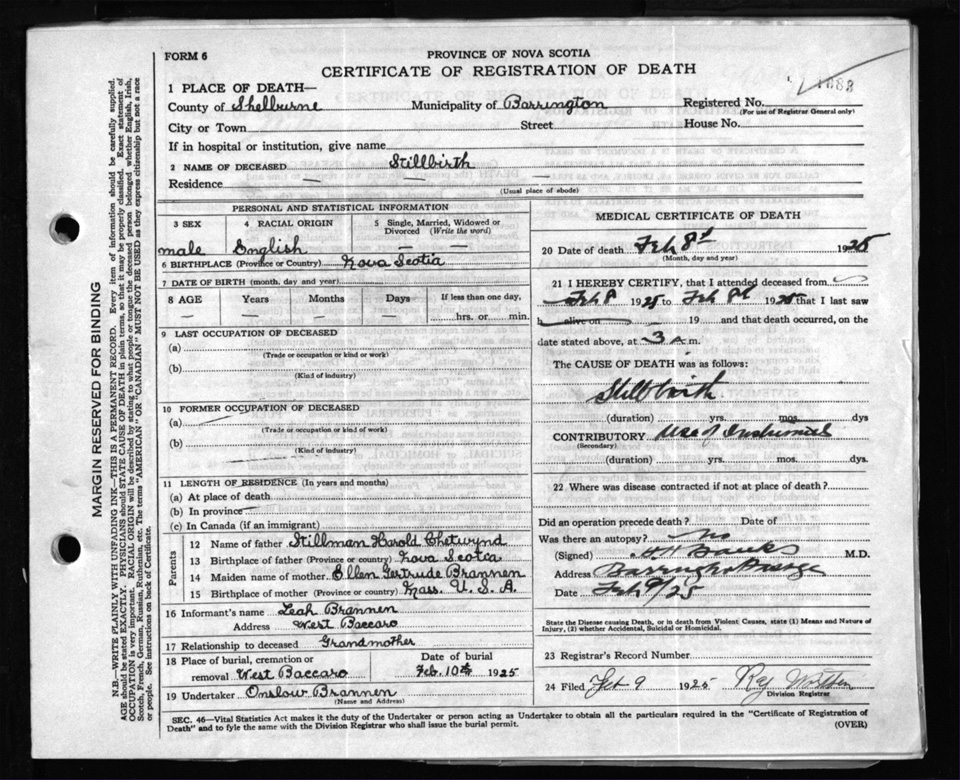 FORM 6
PROVINCE OF NOVA SCOTIA
CERTIFICATE OF REGISTRATION OF DEATH
1 PLACE OF DEATH—
County of Shelburne Municipality of Barrington Registered No.
(For use of Registrar General only)
City or Town Street House No.
If in hospital or institution, give name
2 NAME OF DECEASED Stillbirth
Residence — — —
(Usual place of abode)
PERSONAL AND STATISTICAL INFORMATION
3 SEX 4 RACIAL ORIGIN 5 Single, Married, Widowed or Divorced (Write the word)
male English — —
6 BIRTHPLACE (Province or Country) Nova Scotia
7 DATE OF BIRTH (month, day and year)
8 AGE Years Months Days If less than one day,
— — — — hrs. or min.
9 LAST OCCUPATION OF DECEASED
(a)
(Trade or occupation or kind or work)
(b)
(Kind of industry)
10 FORMER OCCUPATION OF DECEASED
(a)
(Trade or occupation or kind of work)
(b)
(Kind of industry)
11 LENGTH OF RESIDENCE (In years and months)
(a) At place of death
(b) In province
(c) In Canada (if an immigrant)
Parents
12 Name of father Stillman Harold Chetwynd
13 Birthplace of father (Province or country) Nova Scotia
14 Maiden name of mother Ellen Gertrude Brannen
15 Birthplace of mother (Province or country) Mass. U.S.A.
16 Informant's name Leah Brannen
Address West Baccaro
17 Relationship to deceased Grandmother
18 Place of burial, cremation or removal West Baccaro Date of burial Feb. 10th 1925
19 Undertaker Onslow Brannen
(Name and Address)
MEDICAL CERTIFICATE OF DEATH
20 Date of death Feb 8th 1925
(Month, day and year)
21 I HEREBY CERTIFY, that I attended deceased from
Feb 8 1925 to Feb 8th 1925 that I last saw
h alive on 19 and that death occurred, on the
date stated above, at 3 A.m.
The CAUSE OF DEATH was as follows:
Stillbirth
(duration) yrs. mos. dys
CONTRIBUTORY Use of Instruments
(Secondary)
(duration) yrs. mos. dys.
22 Where was disease contracted if not at place of death?
Did an operation precede death? Date of
Was there an autopsy? No
(Signed) H H Banks M.D.
Address Barrington Passage
Date Feb 9/25
State the Disease causing Death, or in death from Violent Causes, state (1) Means and Nature of Injury, (2) whether Accidental, Suicidal or Homicidal.
23 Registrar's Record Number
24 Filed Feb 9 1925
Division Registrar
SEC. 46—Vital Statistics Act makes it the duty of the Undertaker or person acting as Undertaker to obtain all the particulars required in the "Certificate of Registration of
Death" and to fyle the same with the Division Registrar who shall issue the burial permit. (OVER)
MARGIN RESERVED FOR BINDING
N.B.—WRITE PLAINLY WITH UNFADING INK—THIS IS A PERMANENT RECORD. Every item of information should be carefully supplied.
AGE should be stated EXACTLY. PHYSICIANS should STATE CAUSE OF DEATH in plain terms, so that it may be properly classified. Exact statement of
OCCUPATION is very important. RACIAL ORIGIN will be described by stating to what people or tongue the deceased person belonged whether English, Irish,
Scotch, French, German, Russian, Ruthenian, etc. The terms "AMERICAN" OR "CANADIAN" MUST NOT BE USED as they express citizenship but not a race
or people. See instructions on back of Certificate.